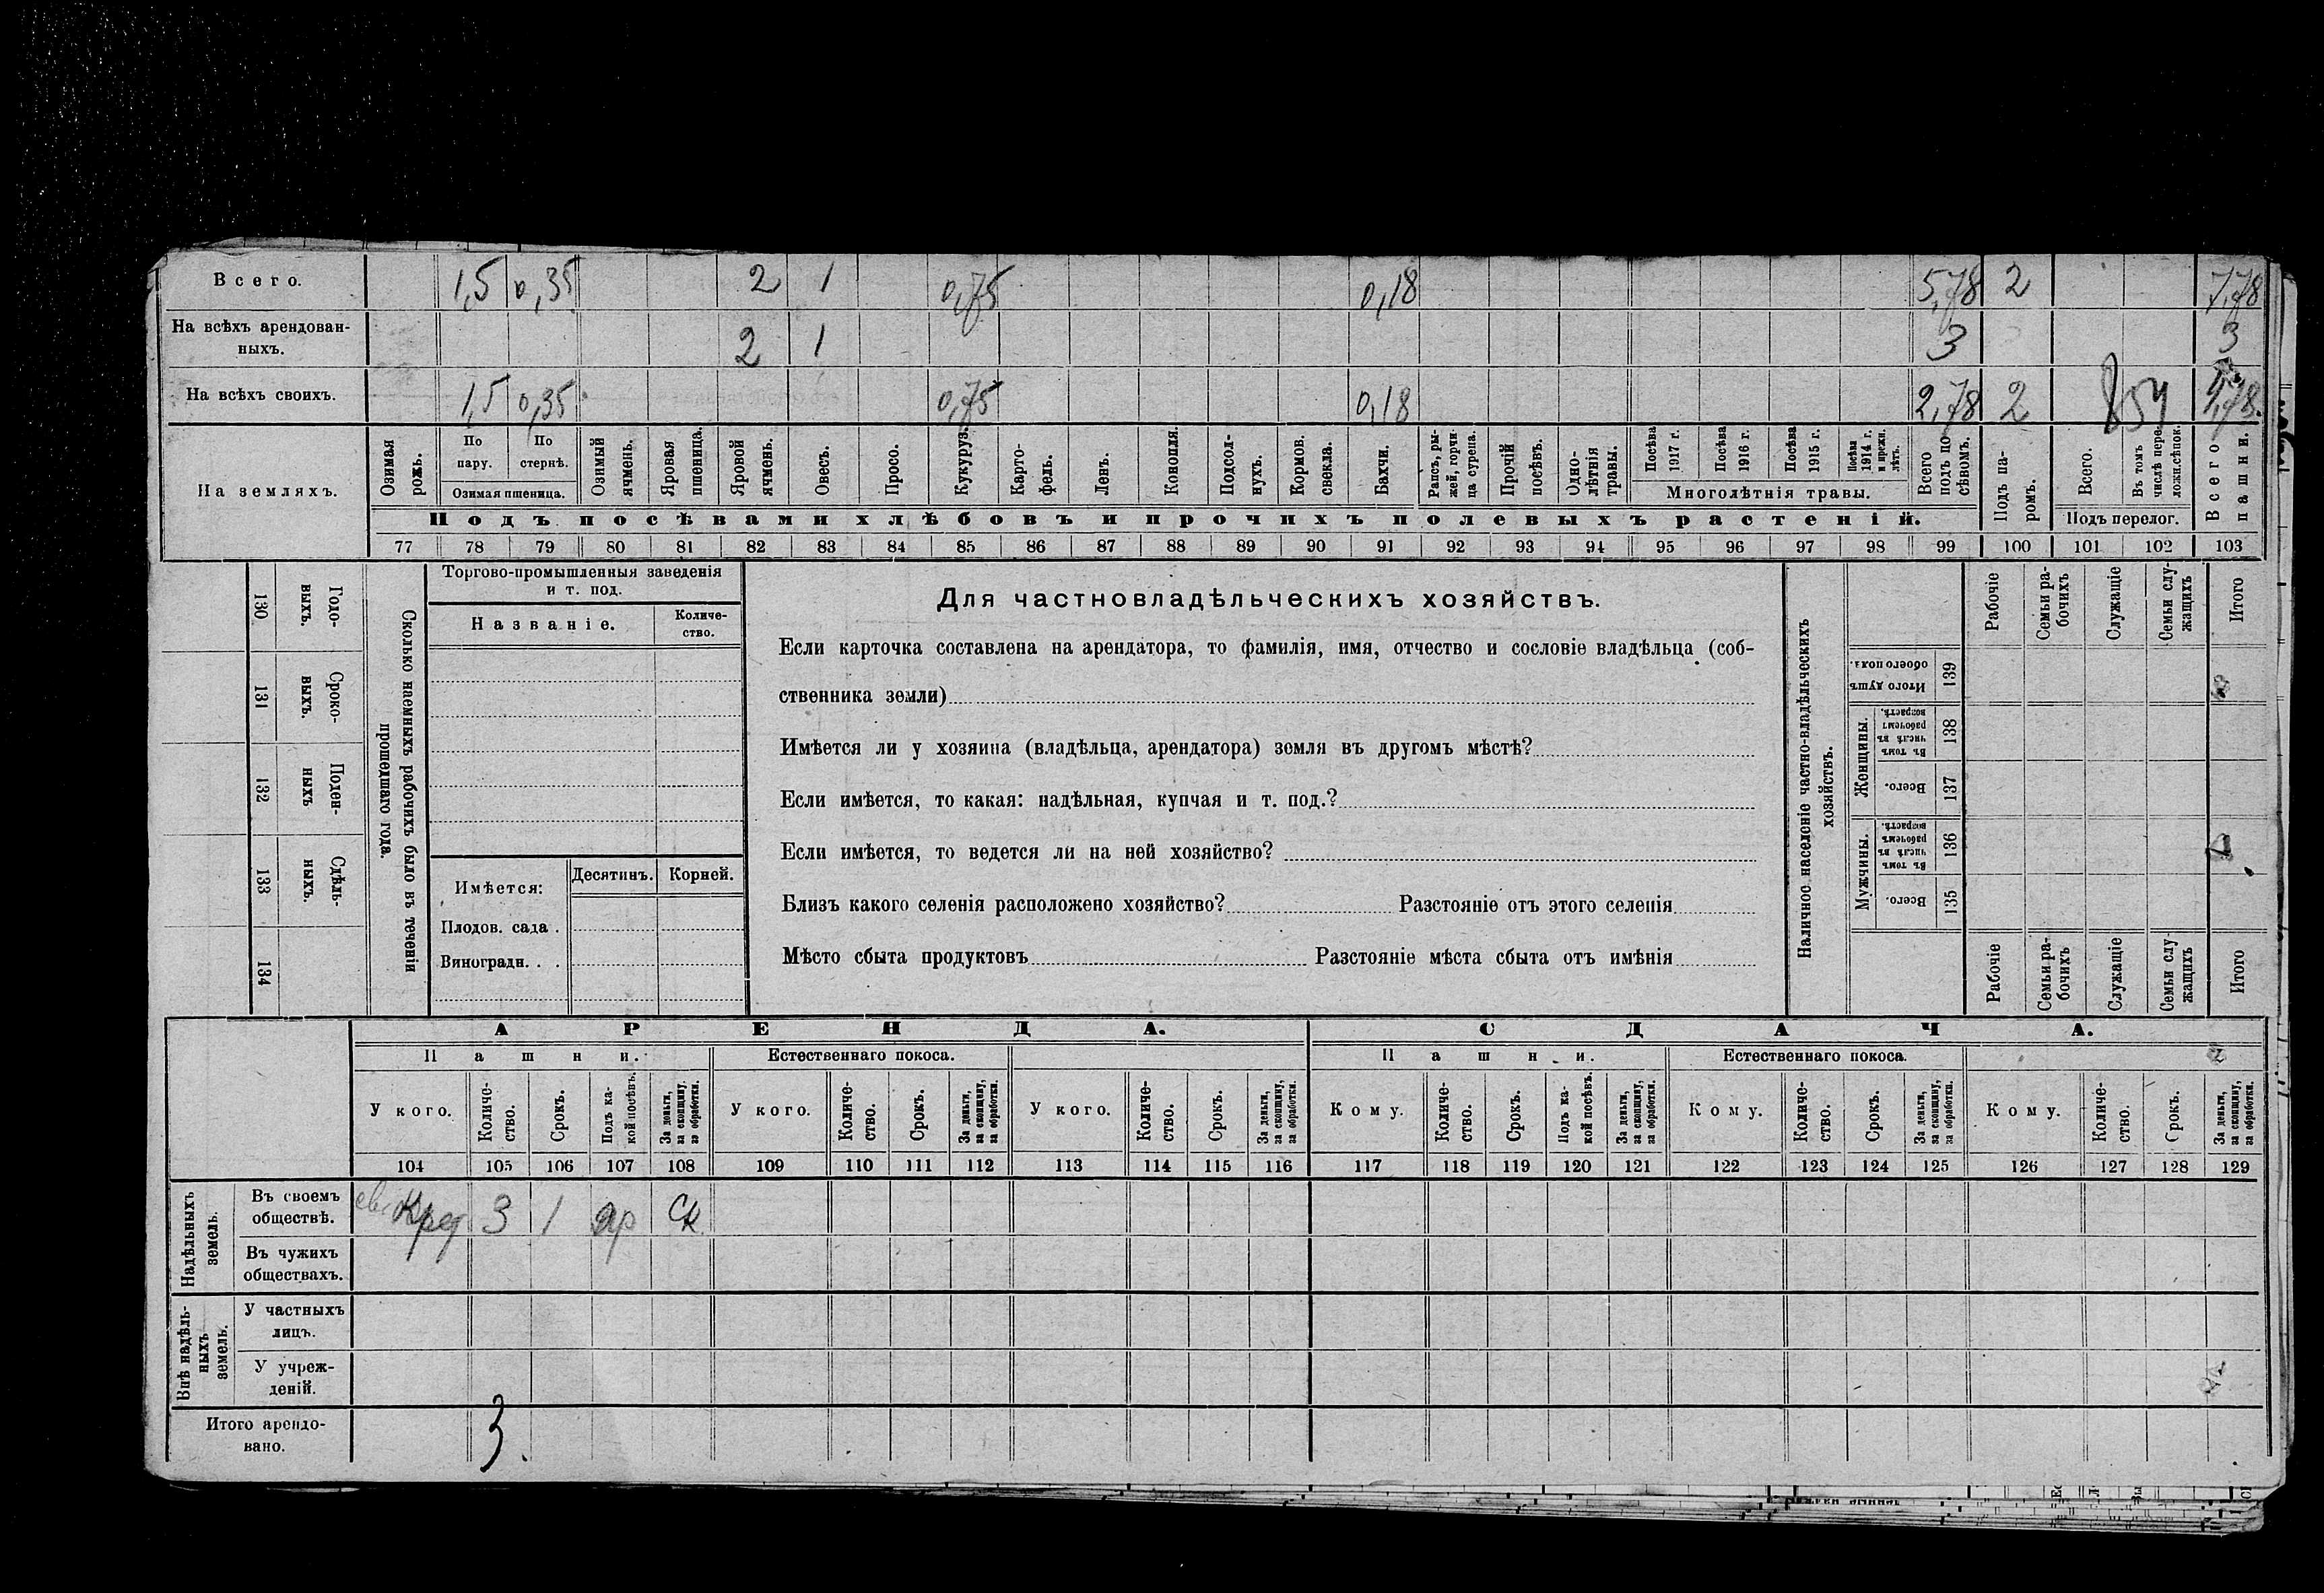 Всего. 1,5 0,35 2 1 0,75 0,18 5,78 2 7,78
На всѣхъ арендован-
ныхъ. 2 1 3 3
На всѣхъ своихъ. 1,5 0,35 0,75 0,18 2,78 2 4,78
На земляхъ.
Озимая рожь.
По пару.
По стернѣ.
Озимая пшеница.
Озимый ячмень.
Яровая пшеница.
Яровой ячмень.
Овесъ.
Просо.
Кукуруз.
Карто-
фель.
Ленъ.
Конопля.
Подсол-
нухъ.
Кормов. свекла.
Бахчи.
Рапсъ, ры-
жей, горчи
ца сурепа.
Прочій посѣвъ.
Одно-
лѣтнія
травы.
Посѣва 1917 г.
Посѣва 1916 г.
Посѣва 1915 г.
Посѣва 1914 г. и прежн. лѣтъ.
Многолѣтнія травы.
Всего подъ по
сѣвомъ.
Подъ па-
ромъ.
Всего.
Въ томъ числѣ пере-
ложн.сѣнок.
Подъ перелог.
Всего пашни.
Подъ посѣвами хлѣбовъ и прочихъ полевыхъ растеній.
77 78 79 80 81 82 83 84 85 86 87 88 89 90 91 92 93 94 95 96 97 98 99 100 101 102 103
130 Годо-
выхъ.
131 Сроко-
выхъ.
132 Поден-
ныхъ
133 Сдѣль-
ныхъ.
134
Сколько наемныхъ рабочихъ было въ теченіи
прошедшаго года.
Торгово-промышленныя заведенія
и т. под.
Названіе.
Количе-
ство.
Имѣется: Десятинъ. Корней.
Плодов. сада .
Виноградн. . .
Для частновладѣльческихъ хозяйствъ.
Если карточка составлена на арендатора, то фамилія, имя, отчество и сословіе владѣльца (соб-
ственника земли)
Имѣется ли у хозяина (владѣльца, арендатора) земля въ другомъ мѣстѣ?
Если имѣется, то какая: надѣльная, купчая и т. под.?
Если имѣется, то ведется ли на ней хозяйство?
Близъ какого селенія расположено хозяйство? Разстояніе отъ этого селенія
Мѣсто сбыта продуктовъ Разстояніе мѣста сбыта отъ имѣнія
Наличное населеніе частно-владѣльческихъ
хозяйствъ.
Рабочіе
Семьи ра-
бочихъ
Служащіе
Семьи слу-
жащихъ
Итого
Итого душъ обоего пола. 139
Женщины.
Въ томъ числѣ въ рабочемъ возрастѣ. 138
Всего. 137
Мужчины.
Въ томъ числѣ въ рабочемъ возрастѣ. 136
Всего. 135
Рабочіе
Семьи ра-
бочихъ
Служащіе
Семьи слу-
жащихъ
Итого
АРЕНДА. СДАЧА.
Пашни. Естественнаго покоса. Пашни. Естественнаго покоса.
У кого.
Количе-
ство.
Срокъ.
Подъ ка-
кой посѣвъ.
За деньги,
за скопщину,
за обработки.
У кого.
Количе-
ство.
Срокъ.
За деньги,
за скопщину,
за обработки.
У кого.
Количе-
ство.
Срокъ.
За деньги,
за скопщину,
за обработки.
Кому.
Количе-
ство.
Срокъ.
Подъ ка-
кой посѣвъ.
За деньги,
за скопщину,
за обработки.
Кому.
Количе-
ство.
Срокъ.
За деньги,
за скопщину,
за обработки.
Кому.
Количе-
ство.
Срокъ.
За деньги,
за скопщину,
за обработки.
104 105 106 107 108 109 110 111 112 113 114 115 116 117 118 119 120 121 122 123 124 125 126 127 128 129
Надѣльныхъ
земель.
Въ своемъ
обществѣ. 3 1 яр Ск.
Въ чужихъ
обществахъ.
Внѣ надѣль-
ныхъ
земель.
У частныхъ
лицъ.
У учреж-
деній.
Итого арендо-
вано. 3.